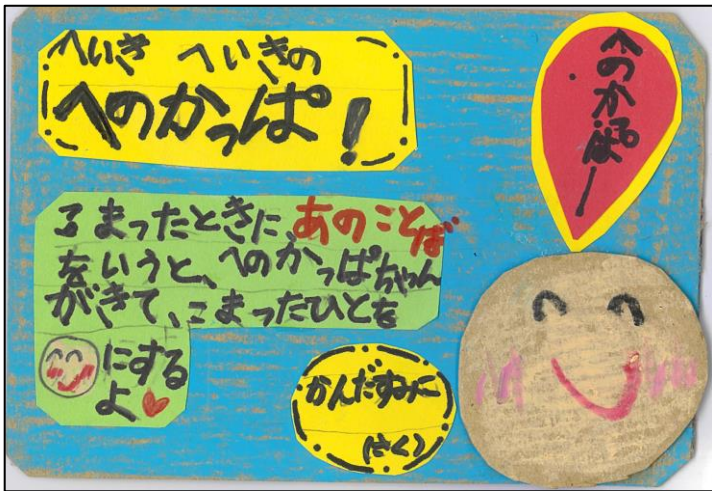 へいき へいきの
へのかっぱ!
へのかっぱー
こまったときに、あのことば
をいうと、へのかっぱちゃん
がきて、こまったひとを
にする
よ
かんだすみこ
(さく)